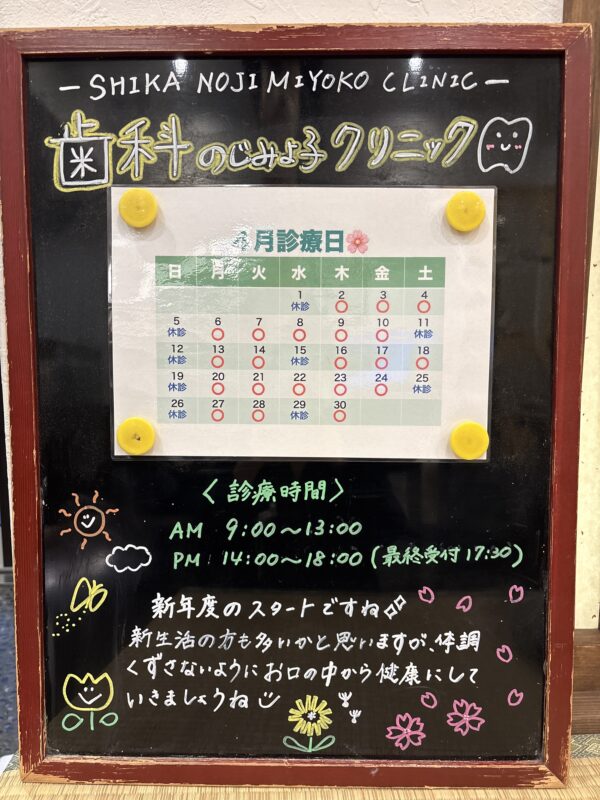 －SHIKA NOJI MIYOKO CLINIC－
歯科のじみよ子クリニック
4月診療日
日 月 火 水 木 金 土
1 2 3 4
休診 ○ ○ ○
5 6 7 8 9 10 11
休診 ○ ○ ○ ○ ○ 休診
12 13 14 15 16 17 18
休診 ○ ○ 休診 ○ ○ ○
19 20 21 22 23 24 25
休診 ○ ○ ○ ○ ○ 休診
26 27 28 29 30
休診 ○ ○ 休診 ○
〈診療時間〉
AM 9:00～13:00
PM 14:00～18:00(最終受付17:30)
新年度のスタートですね
新生活の方も多いかと思いますが、体調
くずさないようにお口の中から健康にして
いきましょうね